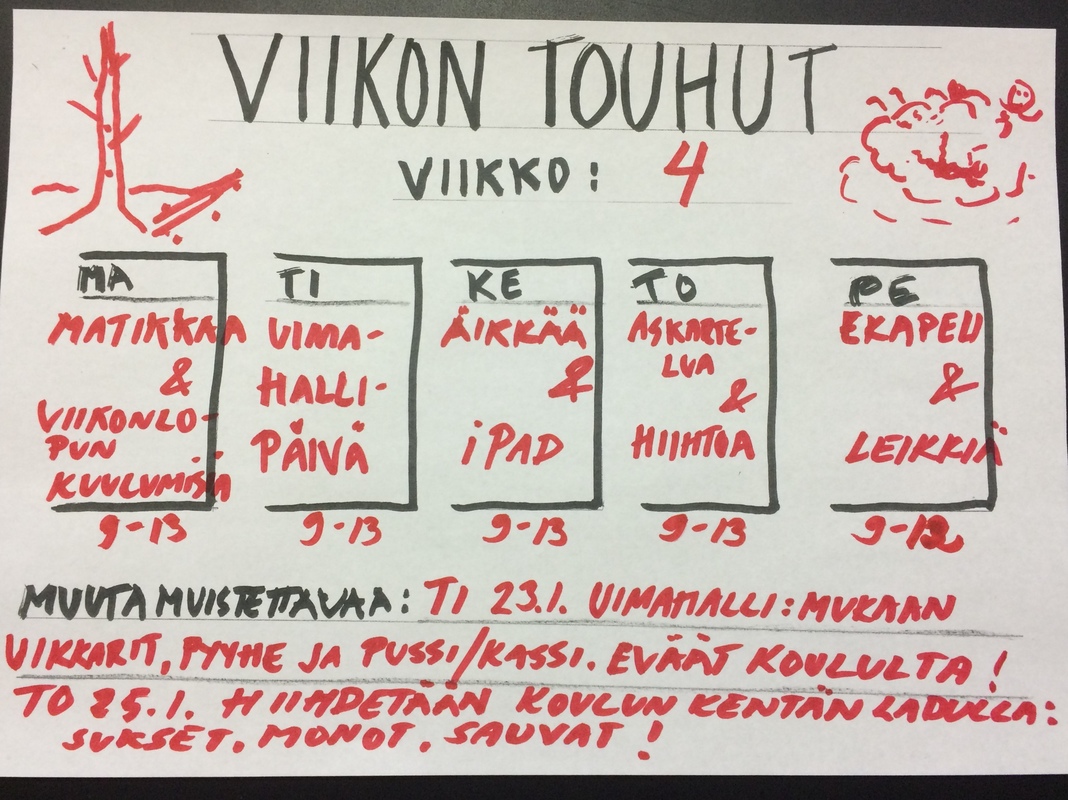 VIIKON TOUHUT
VIIKKO: 4
MA
MATIKKAA
&
VIIKONLO-
PUN
KUULUMISIA
9-13
TI
UIMA-
HALLI-
PÄIVÄ
9-13
KE
ÄIKKÄÄ
&
iPAD
9-13
TO
ASKARTE-
LUA
&
HIIHTOA
9-13
PE
EKAPELI
&
LEIKKIÄ
9-12
MUUTA MUISTETTAVAA: TI 23.1. UIMAHALLI: MUKAAN
UIKKARIT, PYYHE JA PUSSI/KASSI. EVÄÄT KOULULTA!
TO 25.1. HIIHDETÄÄN KOULUN KENTÄN LADULLA:
SUKSET, MONOT, SAUVAT!